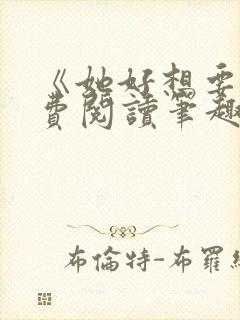 《她好想要
費閱讀筆趣
布倫特-布羅